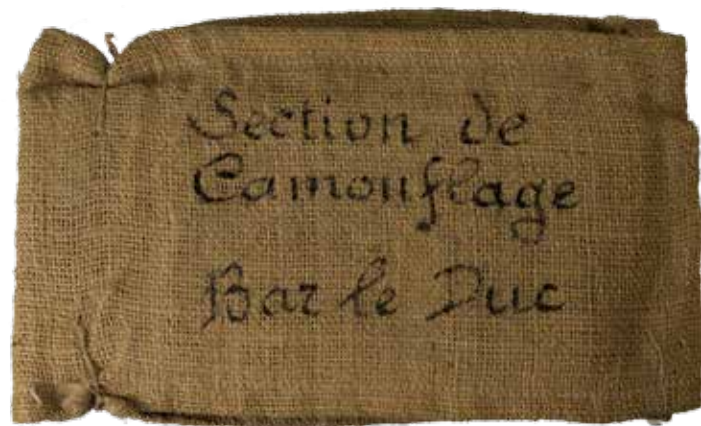 Section de
Camouflage
Bar le Duc